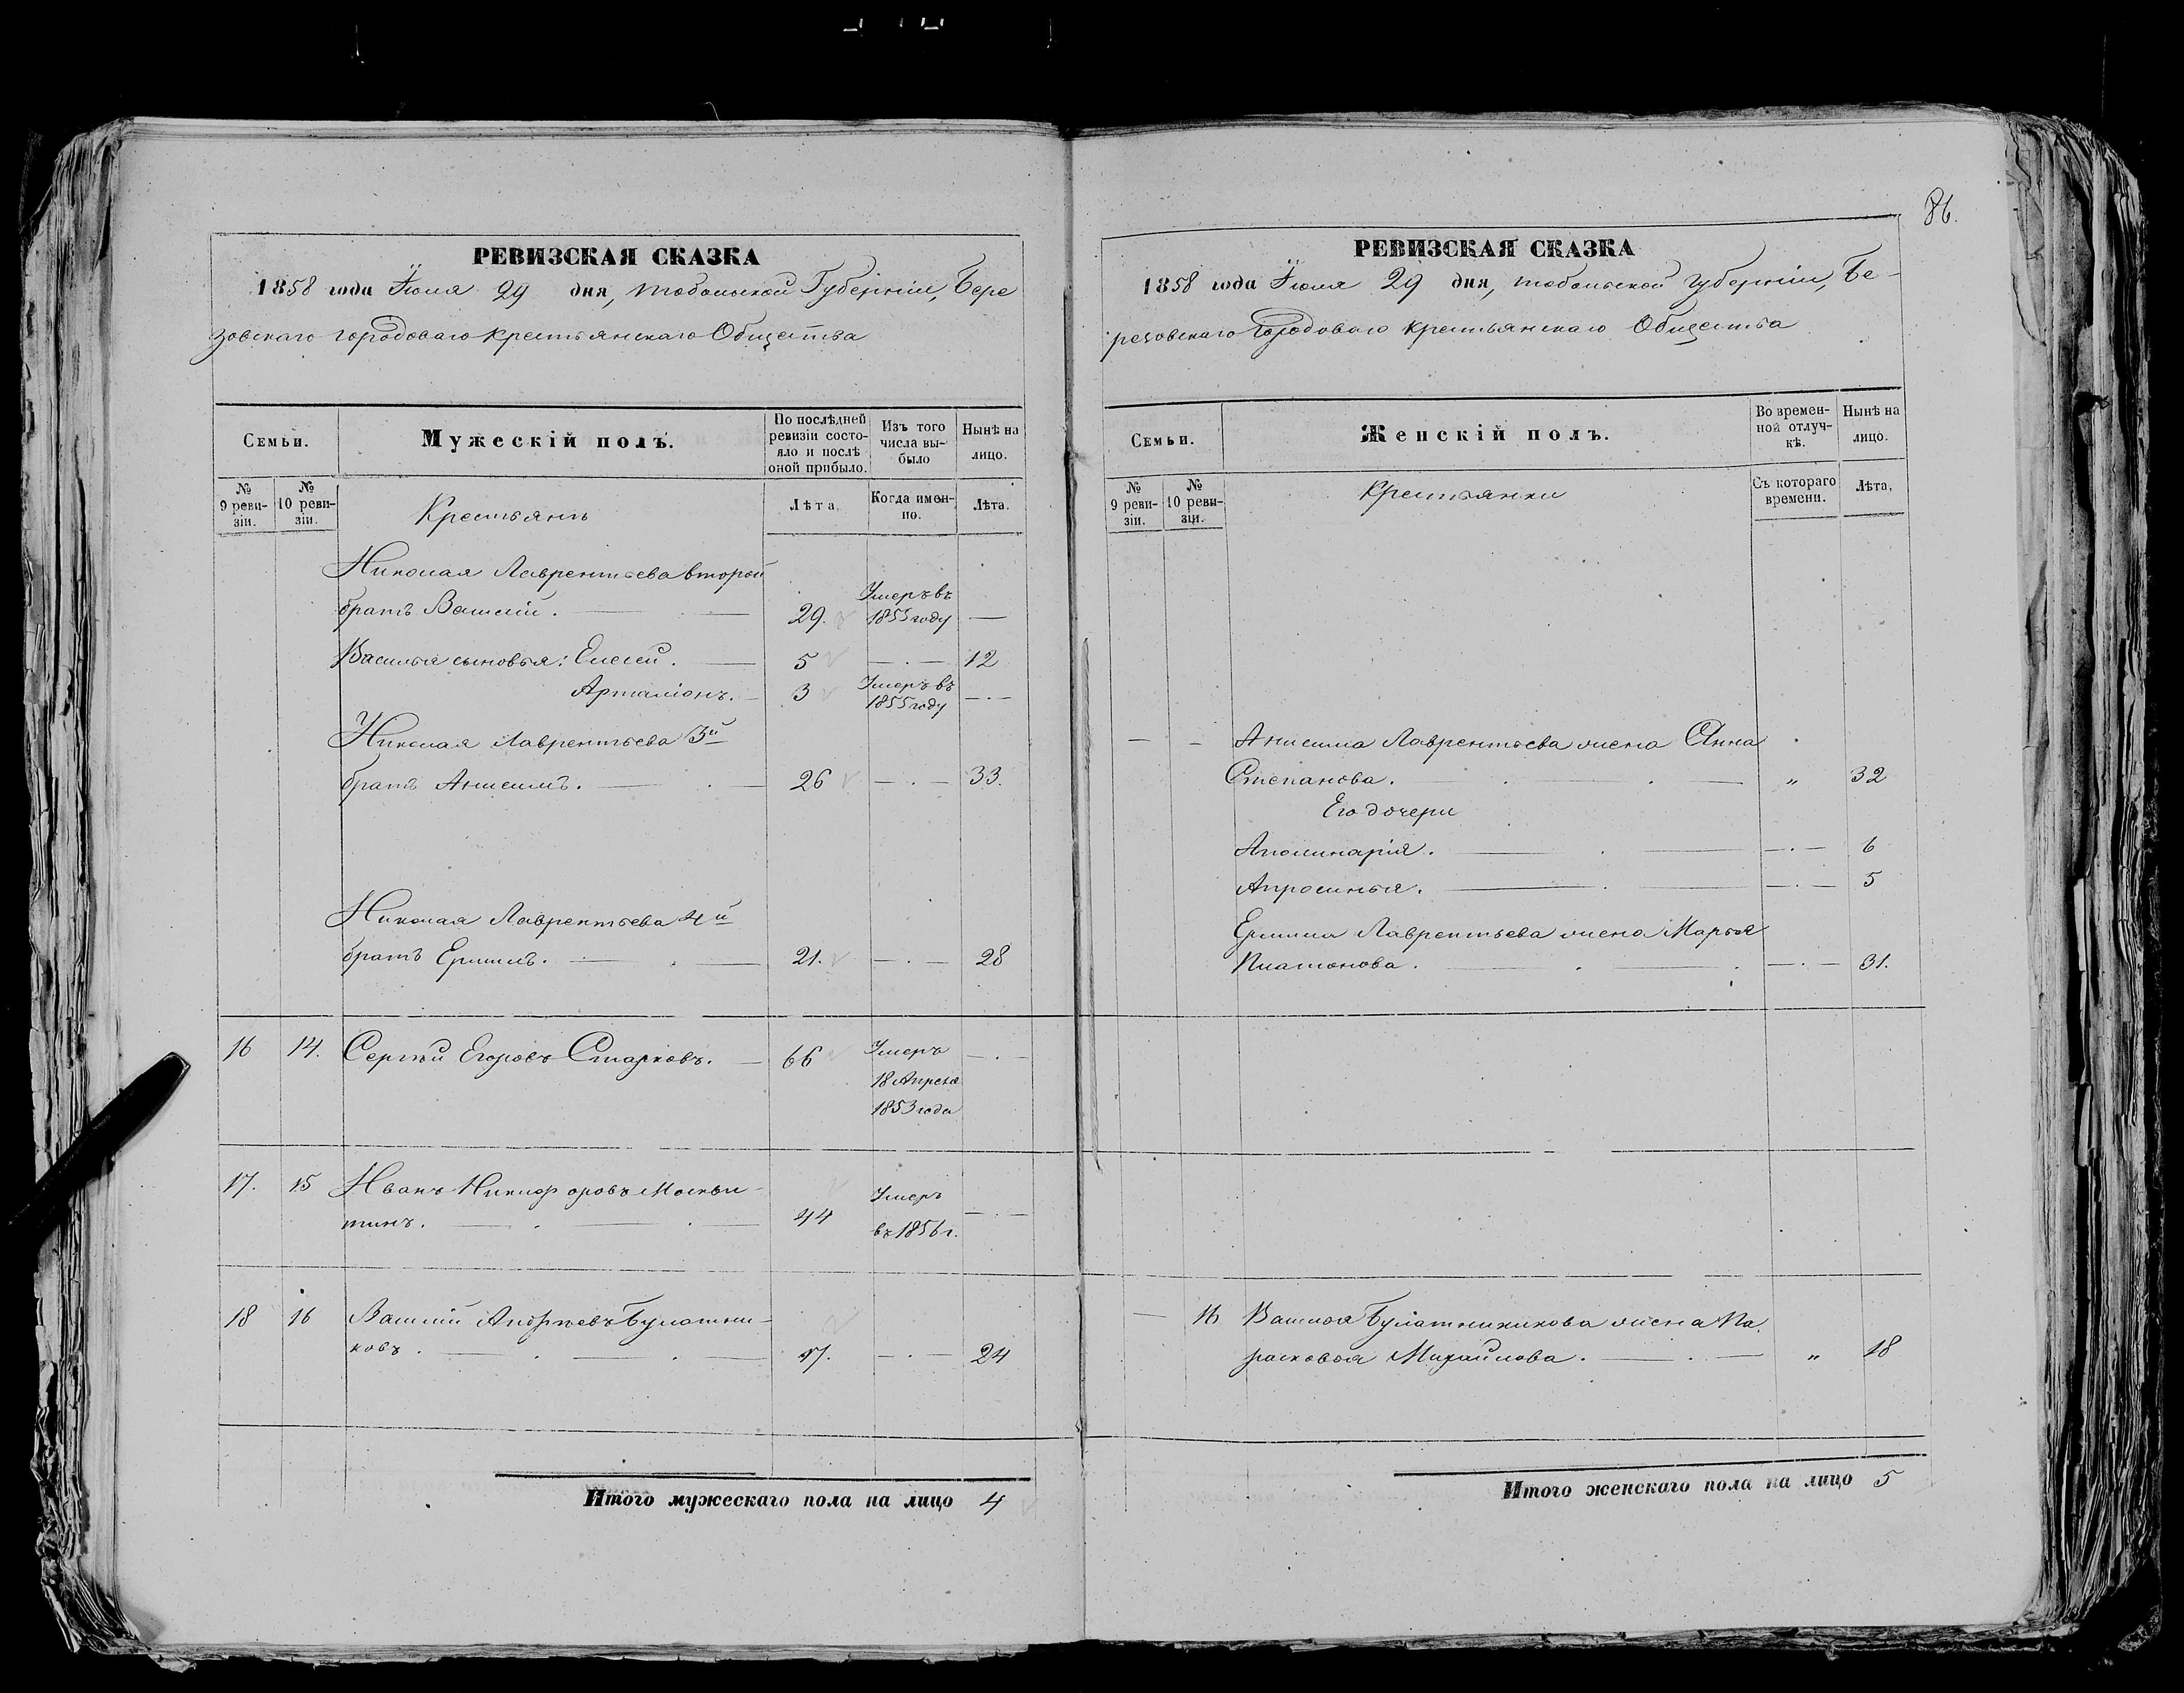 86.
РЕВИЗСКАЯ СКАЗКА
1858 года Июля 29 дня, Тобольской Губерніи, Бере
зовскаго городоваго крестьянскаго Общества
Семьи.
Мужескій полъ.
По послѣдней
ревизіи состо-
яло и послѣ
оной прибыло.
Изъ того
числа вы-
было
Нынѣ на
лицо.
№
9 реви-
зіи.
№
10 реви-
зіи.
Крестьянъ
Лѣта.
Когда имен-
но.
Лѣта.
Николая Лаврентьева второй
братъ Василій. 29. Умеръ въ
1855 году
Василья сыновья: Елисей. 5 12
Арталіонъ. 3 Умеръ въ
1855 году
Николая Лаврентьева 3й
братъ Анисимъ. 26 33.
Николая Лаврентьева 4й
братъ Ермилъ. 21. 28
16 14. Сергѣй Егоровъ Старковъ. 66 Умеръ
18 Апреля
1853 года
17. 15 Иванъ Никифоровъ Москви-
тинъ. 44 Умеръ
въ 1856 г.
18 16 Василій Андреевъ Булатни-
ковъ. 17. 24
Итого мужескаго пола на лицо 4
РЕВИЗСКАЯ СКАЗКА
1858 года Июля 29 дня, Тобольской Губерніи, Бе-
резовскаго Городоваго крестьянскаго Общества
Семьи.
Женскій полъ.
Во времен-
ной отлуч-
кѣ.
Нынѣ на
лицо.
№
9 реви-
зіи.
№
10 реви-
зіи.
Крестьянки
Съ котораго
времени.
Лѣта.
Анисима Лаврентьева жена Анна
Степанова. „ 32
Его дочери
Аполинарія. 6
Апросинья. 5
Ермила Лаврентьева жена Марья
Платонова. 31.
16 Василья Булатниникова жена Па
расковья Михайлова. „ 18
Итого женскаго пола на лицо 5